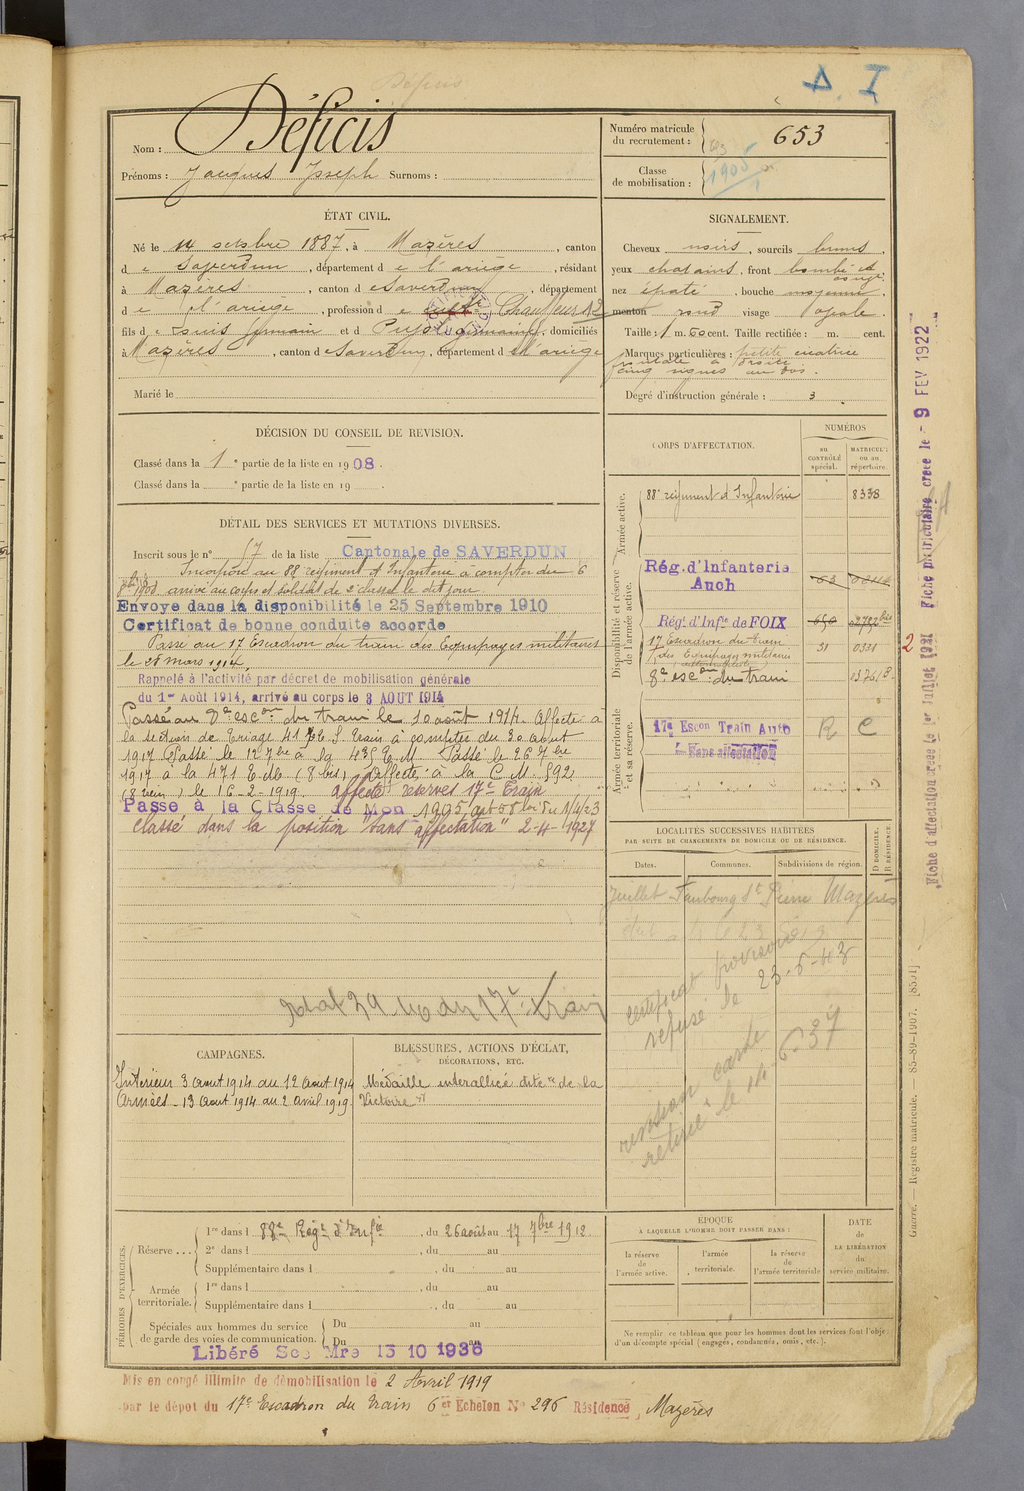 Δ. I
Nom : Déficis
Prénoms : Jacques Joseph Surnoms :
Numéro matricule du recrutement : 653
Classe de mobilisation : 1905
ÉTAT CIVIL.
Né le 14 octobre 1887, à Mazères, canton
de Saverdun, département de l'ariège, résidant
à Mazères, canton de Saverdun, département
de l'ariège, profession de Chauffeur
fils de Louis Germain et de Pujol Germaine, domiciliés
à Mazères, canton de Saverdun, département de l'ariège
Marié le
SIGNALEMENT.
Cheveux noirs, sourcils bruns
yeux chatains, front bombé et
nez épaté, bouche moyenne,
menton rond visage ovale.
Taille : 1 m. 60 cent. Taille rectifiée : m. cent.
Marques particulières : petite cicatrice
frontale à droite
cinq signes au dos.
Degré d'instruction générale : 3
DÉCISION DU CONSEIL DE REVISION.
Classé dans la 1e partie de la liste en 1908.
Classé dans la e partie de la liste en 19 .
DÉTAIL DES SERVICES ET MUTATIONS DIVERSES.
Inscrit sous le n° 57 de la liste Cantonale de SAVERDUN
Incorporé au 88e régiment d'Infanterie à compter du 6
8bre 1908 arrivé au corps et soldat de 2e classe le dit jour.
Envoyé dans la disponibilité le 25 Septembre 1910
Certificat de bonne conduite accordé
Passé au 17e Escadron du train des Equipages militaires
le 28 mars 1914.
Rappelé à l'activité par décret de mobilisation générale
du 1er Août 1914, arrivé au corps le 3 AOUT 1914
Passé au 8e escon du train le 10 août 1914. Affecté à
la section de Triage à compter du 30 août
1917. Passé le 12 7bre à la Passé le 26 7bre
1917 à la 471 (8 bis) Affecté à la C M 592
le 16-2-1919. affecté réserves 17e Train
Passé à la Classe de Mon 1905, art 58 loi du 1/4/23
Classé dans la position "sans affectation" 2-4-1927
CORPS D'AFFECTATION.
NUMÉROS
au CONTRÔLE spécial.
MATRICULE ou au répertoire.
Armée active.
88e régiment d'Infanterie 8338
Disponibilité et réserve de l'armée active.
Rég. d'Infanterie
Auch
Rég. d'Infie de FOIX
17e Escadron du train 31 0331
des Equipages militaires
8e escon du train
Armée territoriale et sa réserve.
17e Escon Train Auto R C
Sans affectation
LOCALITÉS SUCCESSIVES HABITÉES
PAR SUITE DE CHANGEMENTS DE DOMICILE OU DE RÉSIDENCE.
Dates. Communes. Subdivisions de région. D DOMICILE. R RÉSIDENCE.
Juillet Faubourg St Pierre Mazères
certificat provisoire
refusé le 23-6-43
carte
retirée le 14-6-37
CAMPAGNES.
Intérieur 3 Aout 1914 au 12 Aout 1914
Armées - 13 Aout 1914 au 2 avril 1919.
BLESSURES, ACTIONS D'ÉCLAT,
DÉCORATIONS, ETC.
Médaille interalliée dite "de la
Victoire"
PÉRIODES D'EXERCICES.
Réserve ...
1re dans l 88e Régt d'Infie, du 26 août au 17 7bre 1912.
2e dans l , du au
Supplémentaire dans l , du au
Armée territoriale.
1re dans l , du au
Supplémentaire dans l , du au
Spéciales aux hommes du service
de garde des voies de communication.
Du au
Du au
Libéré Ser Mre 15 10 1936
ÉPOQUE
À LAQUELLE L'HOMME DOIT PASSER DANS :
la réserve de l'armée active.
l'armée territoriale.
la réserve de l'armée territoriale
DATE DE LA LIBÉRATION du service militaire.
Ne remplir ce tableau que pour les hommes dont les services font l'objet
d'un décompte spécial (engagés, condamnés, omis, etc.).
Mis en congé illimité de démobilisation le 2 Avril 1919
par le dépôt du 17e Escadron du train 6e Echelon N° 296 Résidence, Mazères
Fiche matriculaire créée le - 9 FEV 1922
Fiche d'affectation créée le 1er Juillet 1931
2
Guerre. — Registre matricule. — 85-89-1907. [8501]